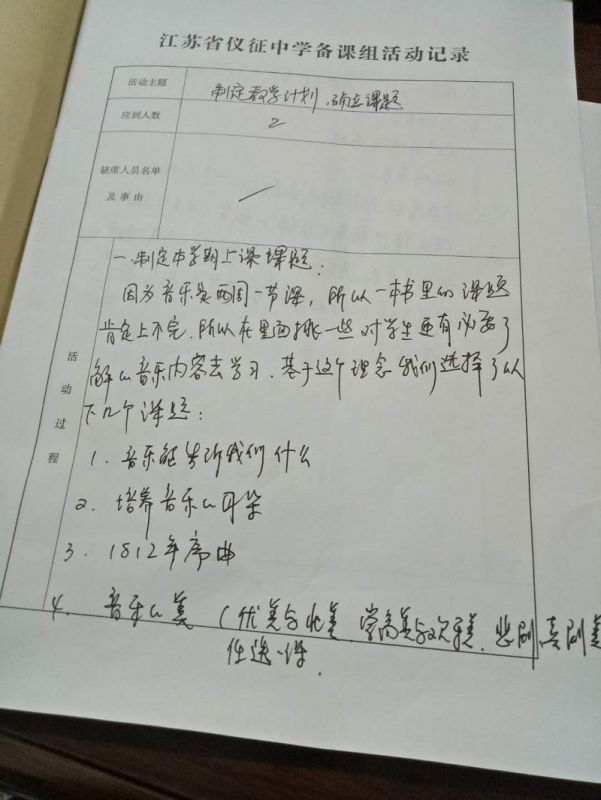 江苏省仪征中学备课组活动记录
活动主题 制定教学计划.确立课题
应到人数 2
缺席人员名单
及事由
活动过程
一.制定本学期上课课题:
因为音乐是两周一节课,所以一本书里的课题
肯定上不完.所以在里面挑一些对学生更有必要了
解的音乐内容去学习.基于这个理念我们选择了以
下几个课题:
1.音乐能告诉我们什么
2.培养音乐的耳朵
3.1812年序曲
4.音乐的美(优美与壮美 崇高美与欢乐美.悲剧喜剧美
任选一课.